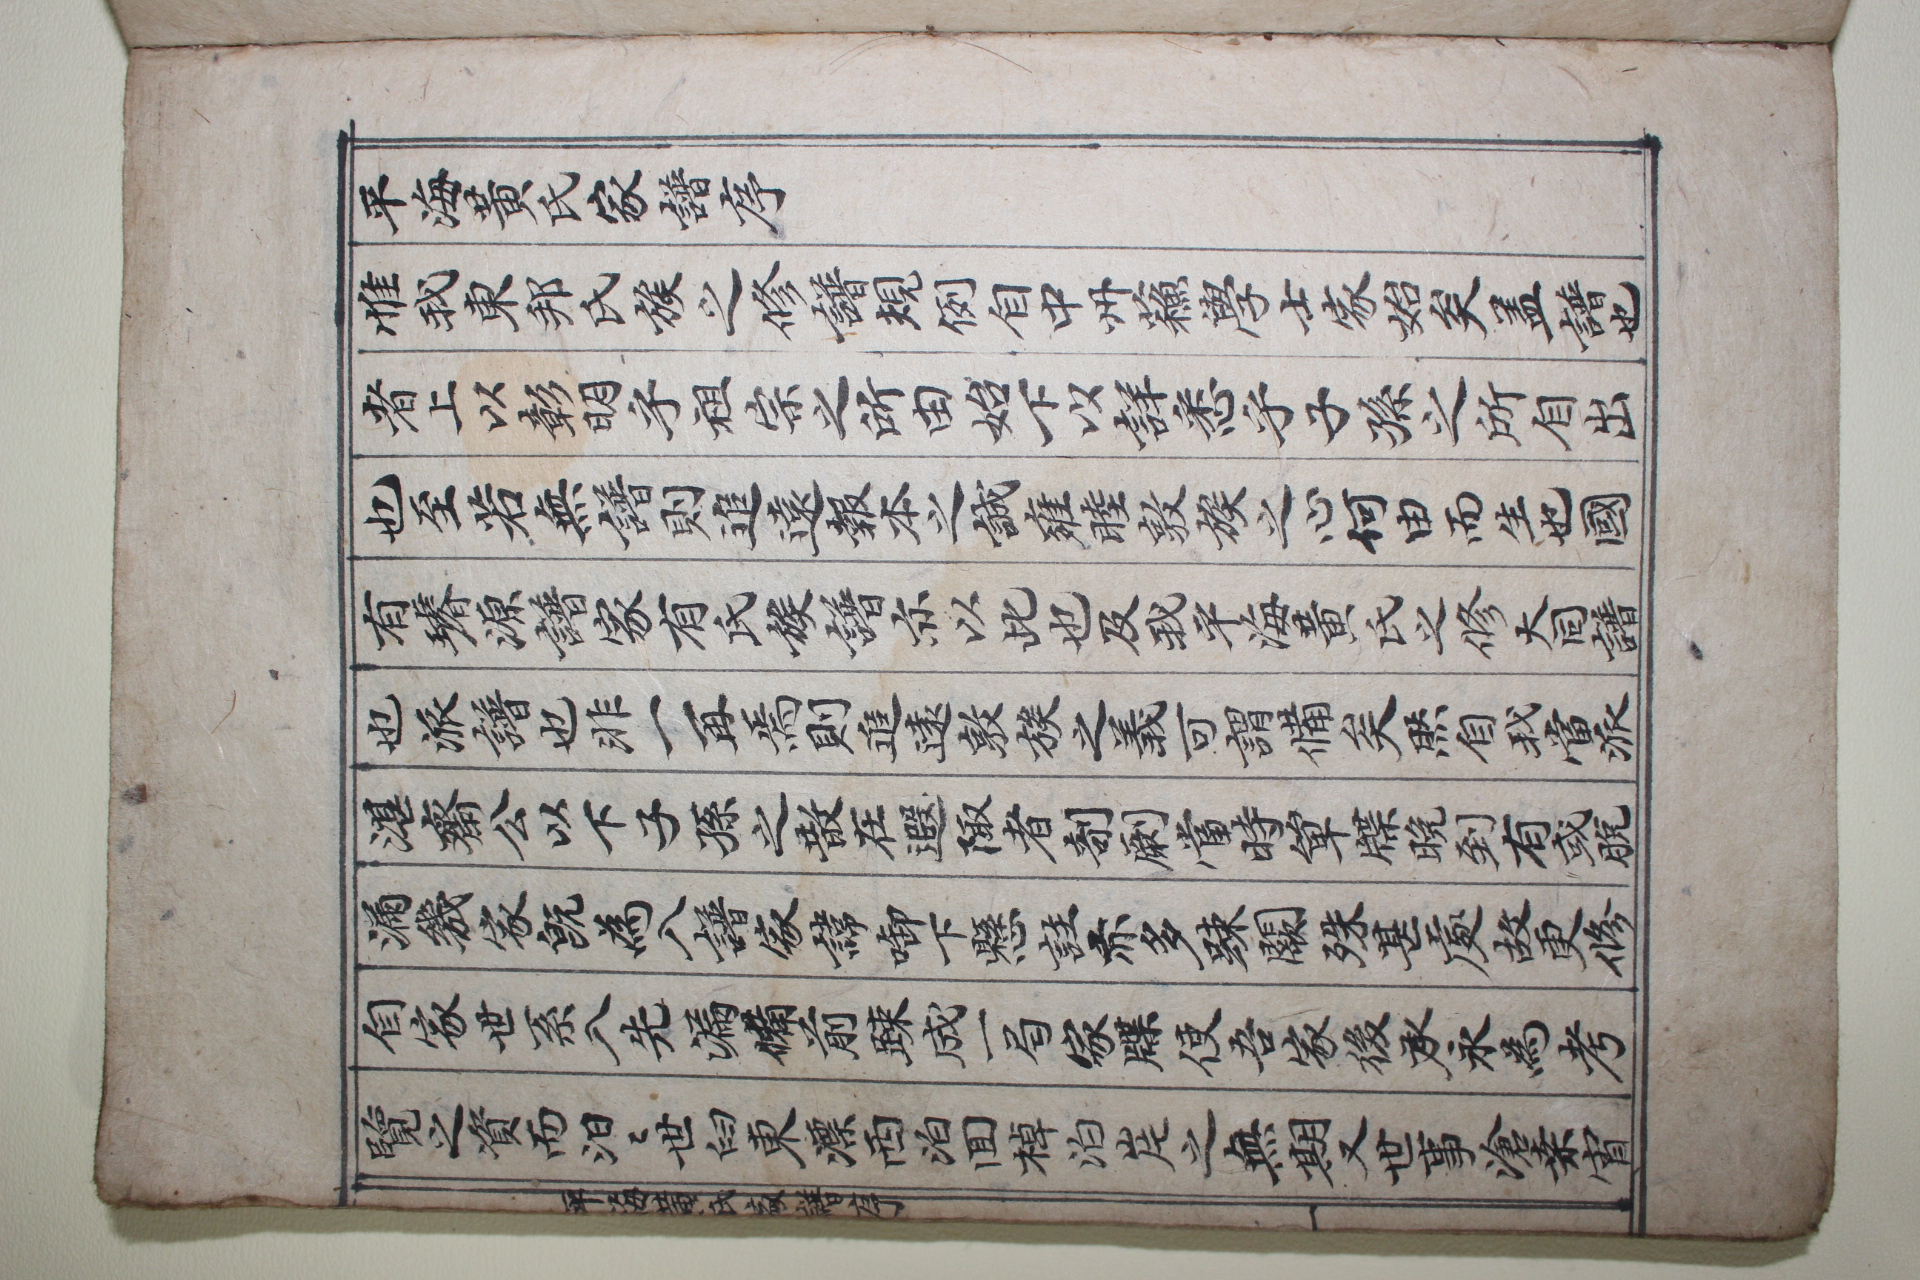 平海黃氏家譜序
惟我東邦氏族之修譜規例自中州蘓學士家始矣盖譜也
者上以彰明乎祖宗之所由始下以詳悉乎子孫之所自出
也至若無譜則追遠報本之誠雍睦敦族之心何由而生也國
有璿源譜家有氏族譜亦以此也及我平海黃氏之修大同譜
也派譜也非一再焉則追遠敦族之義可謂備矣然自我當派
湛齋公以下子孫之散在遐陬者剞劂當時單牒晩到有或脫
漏幾家旣為入譜家諱啣下懸註亦多踈闕殊甚慶故更修
自家世系入先漏備前踈成一局家牒使吾家後承永為考
覽之資而汨〻世臼東漂西泊回棹泊岸之無期又世事滄桑宵
平海黃氏家譜序